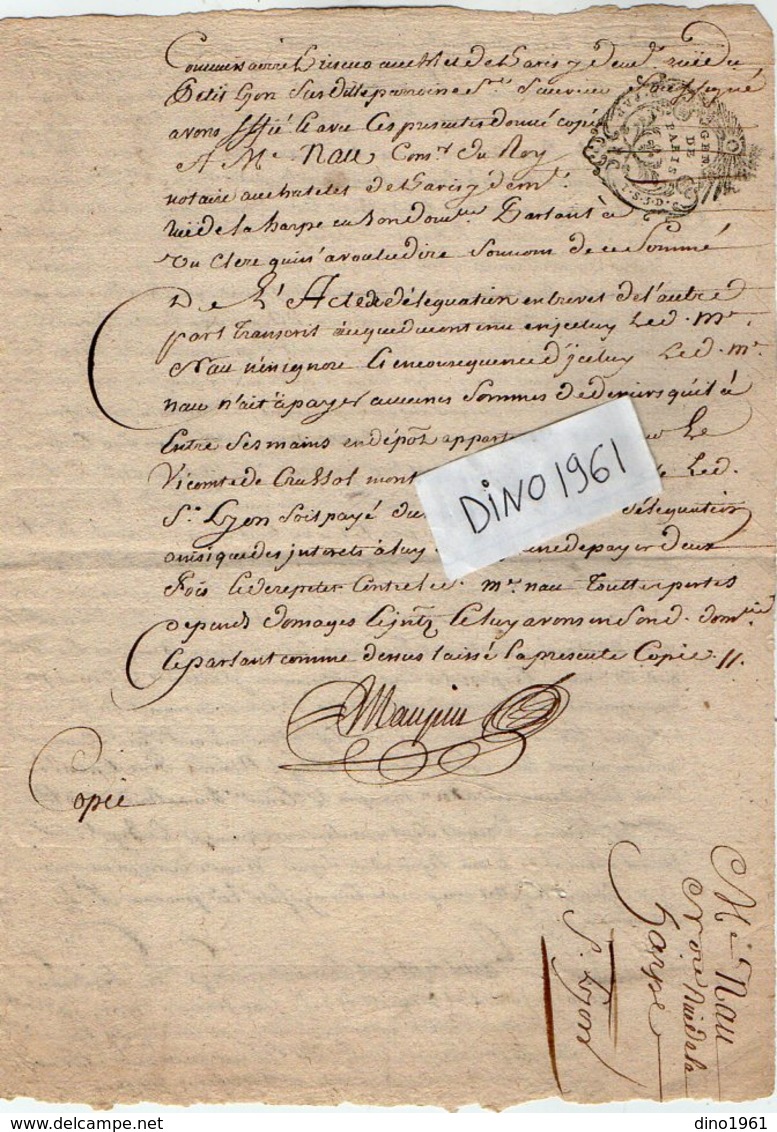 Commissaire huissier au chlet de Paris y demt rue du
Petit Lyon susditte paroisse St. Sauveur Soussigné
avons et avec ces presentes donné copie
A Me. Nau Consr. du Roy
notaire au chatelet de Paris y demt.
ruë de la harpe en son domlle Parlant à
Un Clerc qui n'a voulu dire son nom de ce Sommé
De L'Acte de délégation en brevet de l'autre
part transcrit à ce que du contenu en jceluy Led. Me.
Nau n'en ignore et en consequence d'jceluy Led. Me.
nau n'ait à payer aucunes sommes de deniers qu'il à
Entre ses mains en dépôt appart Le
Vicomte de Crussol Led.
Sr. Lyon soit payé du délégation
ainsi que des interets à luy de payer deux
fois et de repeter contre led. Me. nau touttes pertes
depends domages et jntz. et luy avons en sond. domlle
et parlant comme dessus laissé la presente Copie //.
Maupin
Copie
GEN.
DE
PARIS
DINO1961
Me Nau
Nore ruë de la
harpe
Sr. Lyon
dino1961